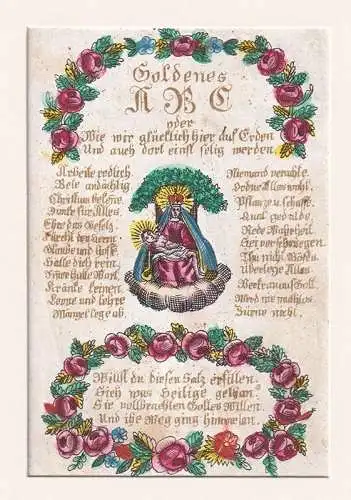 Goldenes
A B C
oder
Wie wir glücklich hier auf Erden
Und auch dort einst selig werden.
Arbeite redlich
Bete andächtig
Christum bekenne.
Danke für Alles.
Ehre das Gesetz
Fürcht den Herrn
Glaube und hoff.
Halte dich rein.
Kränke keinen.
Lerne und lehre
Mängel lege ab.
Niemand verachte.
Ordne Alles wohl.
Pflanze u. schaffe.
Qual gedulde
Rede Wahrheit.
Thu nicht Böses
Überlege Alles
Vertrau auf Gott.
Werd nie
Zürne nicht.
Willst du diesen Satz erfüllen.
Sieh was Heilige gethan!
Sie vollbrachten Gottes Willen.
Und ihr Weg ging himmelan.